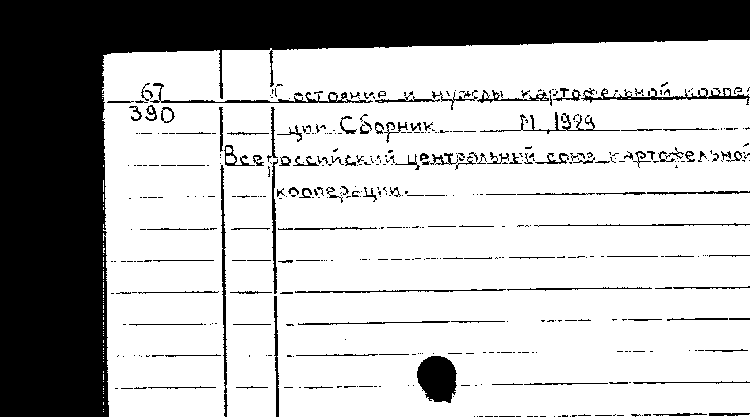 67
390
Состояние и нужды картофельной коопер
ции. Сборник. М., 1929
Всероссийский центральный союз картофельной
кооперации.